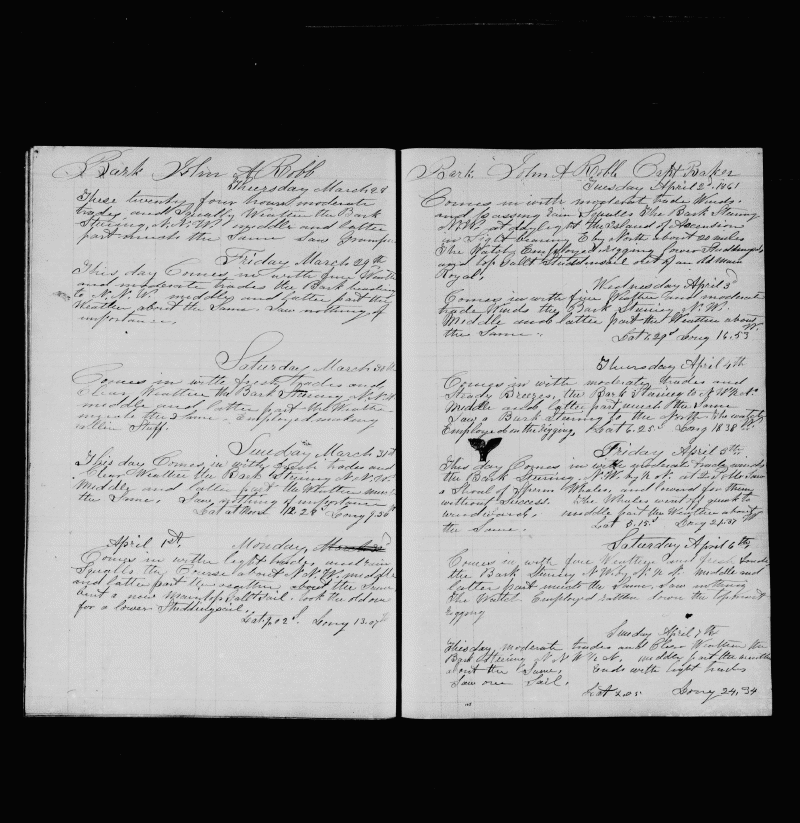 Bark John A Robb
Thursday March 28
These twenty four hours moderate
trades and Squally Weather the Bark
Steering N.N.W. middle and latter
part much the Same Saw Grampus
Friday March 29th
This day Comes in with fine Weather
and moderate trades the Bark heading
to N.N.W. middle and latter part the
Weather about the Same. Saw nothing of
importance.
Saturday March 30th
Comes in with fresh trades and
Clear Weather the Bark Steering N.N.W.
middle and latter part the Weather
much the Same. Employed making
Stuff.
Sunday March 31st
This day Comes in with fresh trades and
Clear Weather the Bark Steering N.N.W.
Middle and latter part the Weather much
the Same. Saw nothing of importance
Lat at Noon 12.28 Long 9.36
April 1st. Monday,
Comes in with light trades and rain
Squalls the Course about N.N.W. middle
and latter part the weather bout the Same
bent a new topsail. took the old one
for a lower Studdingsail.
Long 13.07
Bark John A Robb Capt Baker
Tuesday April 2d 1861
Comes in with moderate trade Winds
and passing rain Squalls The Bark Steering
N.N.W. at daylight the Island of Ascention
in Sight bearing E by North about 20 miles
The Watch Employed rigging lower Studdingsail
out of an old Main
Royal.
Wednesday April 3d
Comes in with fine Weather and moderate
trade Winds the Bark Steering N.W.
Middle and latter part the Weather about
the Same. Lat 7.29 Long 16.53 W.
Thursday April 4th
Comes in with moderate trades and
Steady Breezes, the Bark Steering
Middle and latter part much the Same
Saw a Bark Steering to the North The watch
Employed in the rigging, Lat 6.25 Long 18.38
Friday April 5th
This day Comes in with moderate trade winds
the Bark Steering N.W. by N. at Saw
a Shoal of Sperm Whales, and lowered for them
without Success. The Whales went off quick to
windward. middle part the Weather about
the Same. Lat 5.15 Long 21.37
Saturday April 6th
Comes in with fine Weather and fresh trades
the Bark Steering N.W. by N. middle and
latter part much the Same. Saw nothing
The Watch Employed on the topmast
rigging
Sunday April 7th
This day moderate trades and Clear Weather the
Bark Steering middle part the weather
about the Same. Ends with light trades
Saw one Sail.
Long 24.34